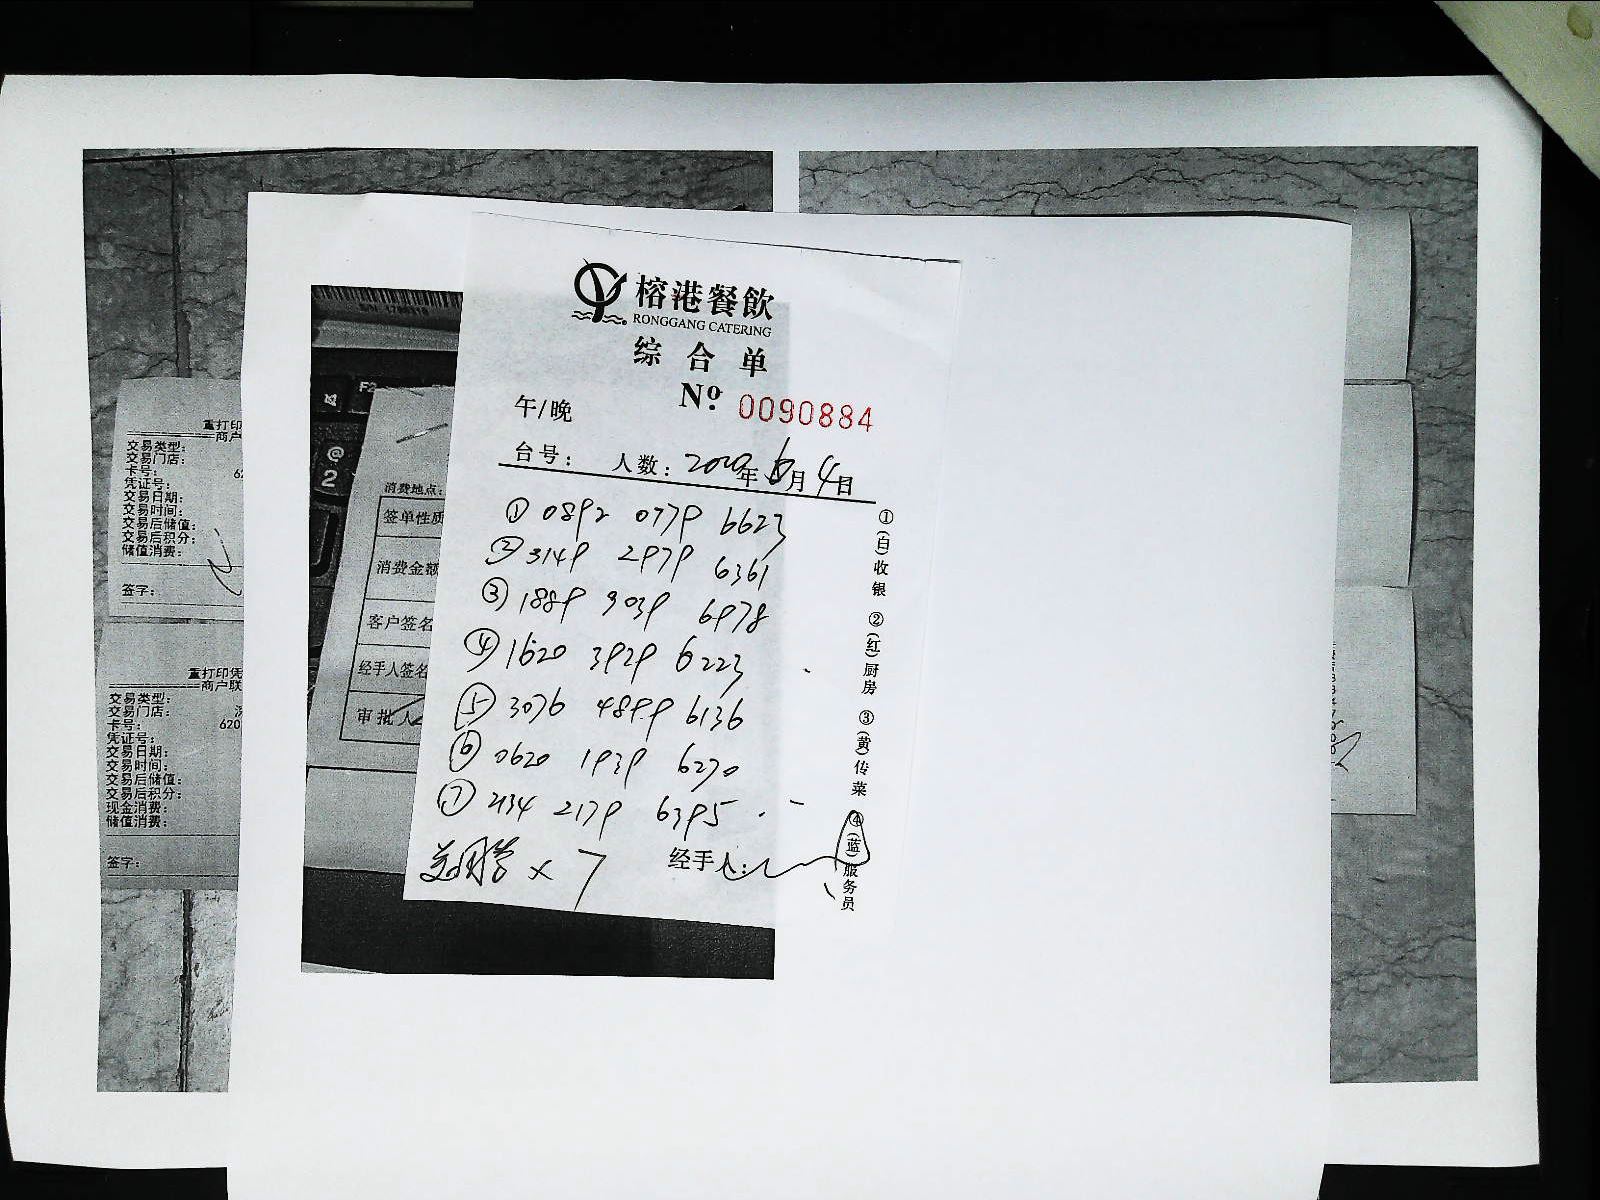 榕港餐飲
RONGGANG CATERING
综合单
№ 0090884
午/晚
台号： 人数：2020年6月4日
① 0892 0779 6623
② 3149 2979 6361
③ 1889 9039 6978
④ 1620 3929 6223
⑤ 3076 4899 6136
⑥ 0620 1939 6270
⑦ 2134 2179 6395
× 7
经手人：
①(白)收银 ②(红)厨房 ③(黄)传菜 ④(蓝)服务员
F2
@
2
消费地点：
签单性质
消费金额
客户签名
经手人签名
审批人
重打印
商户
交易类型：
交易门店：
卡号： 62
凭证号：
交易日期：
交易时间：
交易后储值：
交易后积分：
储值消费：
签字：
重打印凭
商户联
交易类型：
交易门店：
卡号： 620
凭证号：
交易日期：
交易时间：
交易后储值：
交易后积分：
现金消费：
储值消费：
签字：